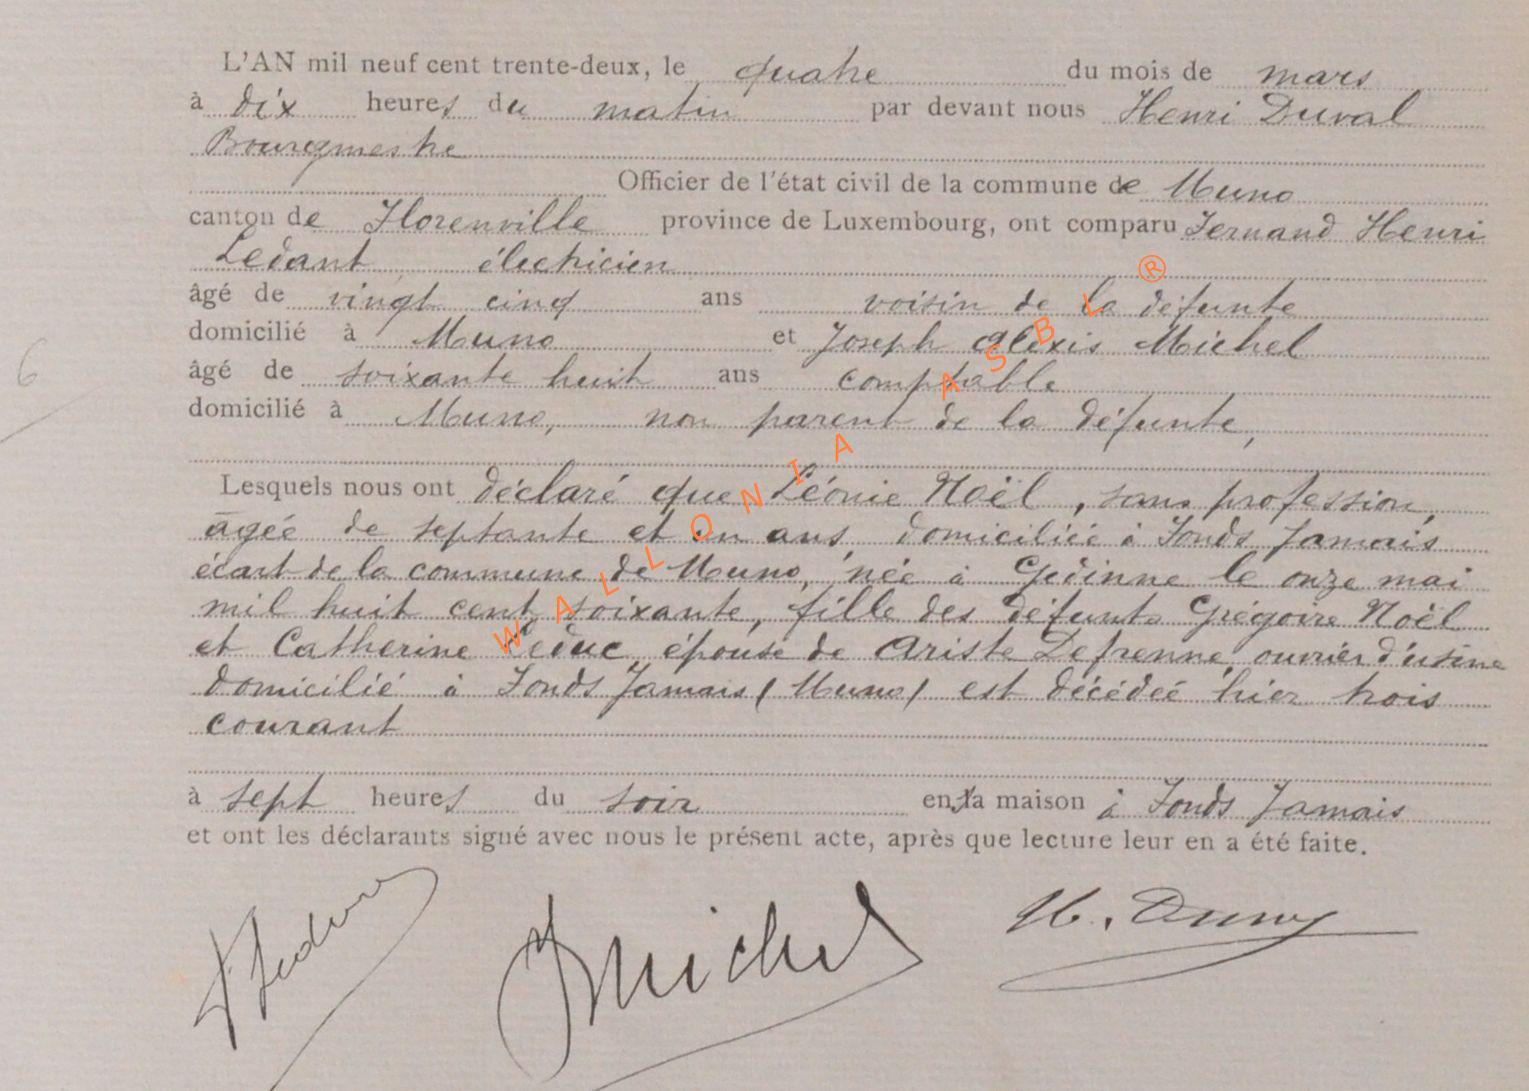 L'AN mil neuf cent trente-deux, le quatre du mois de mars
à dix heures du matin par devant nous Henri Duval
Bourgmestre
Officier de l'état civil de la commune de Muno
canton de Florenville province de Luxembourg, ont comparu Fernand Henri
Ledant, électricien
âgé de vingt cinq ans voisin de la défunte
domicilié à Muno et Joseph Alexis Michel
6
âgé de soixante huit ans comptable
domicilié à Muno, non parent de la défunte,
Lesquels nous ont déclaré que Léonie Noël, sans profession,
âgée de septante et un ans, domiciliée à Fonds Jamais
écart de la commune de Muno, née à Gedinne le onze mai
mil huit cent soixante, fille des défunts Grégoire Noël
et Catherine Leduc, épouse de Ariste Defrenne, ouvrier d'usine
domicilié à Fonds Jamais (Muno) est décédée hier trois
courant
à sept heures du soir en sa maison à Fonds Jamais
et ont les déclarants signé avec nous le présent acte, après que lecture leur en a été faite.
JMichel
H. Duval
WALLONIA ASBL ®